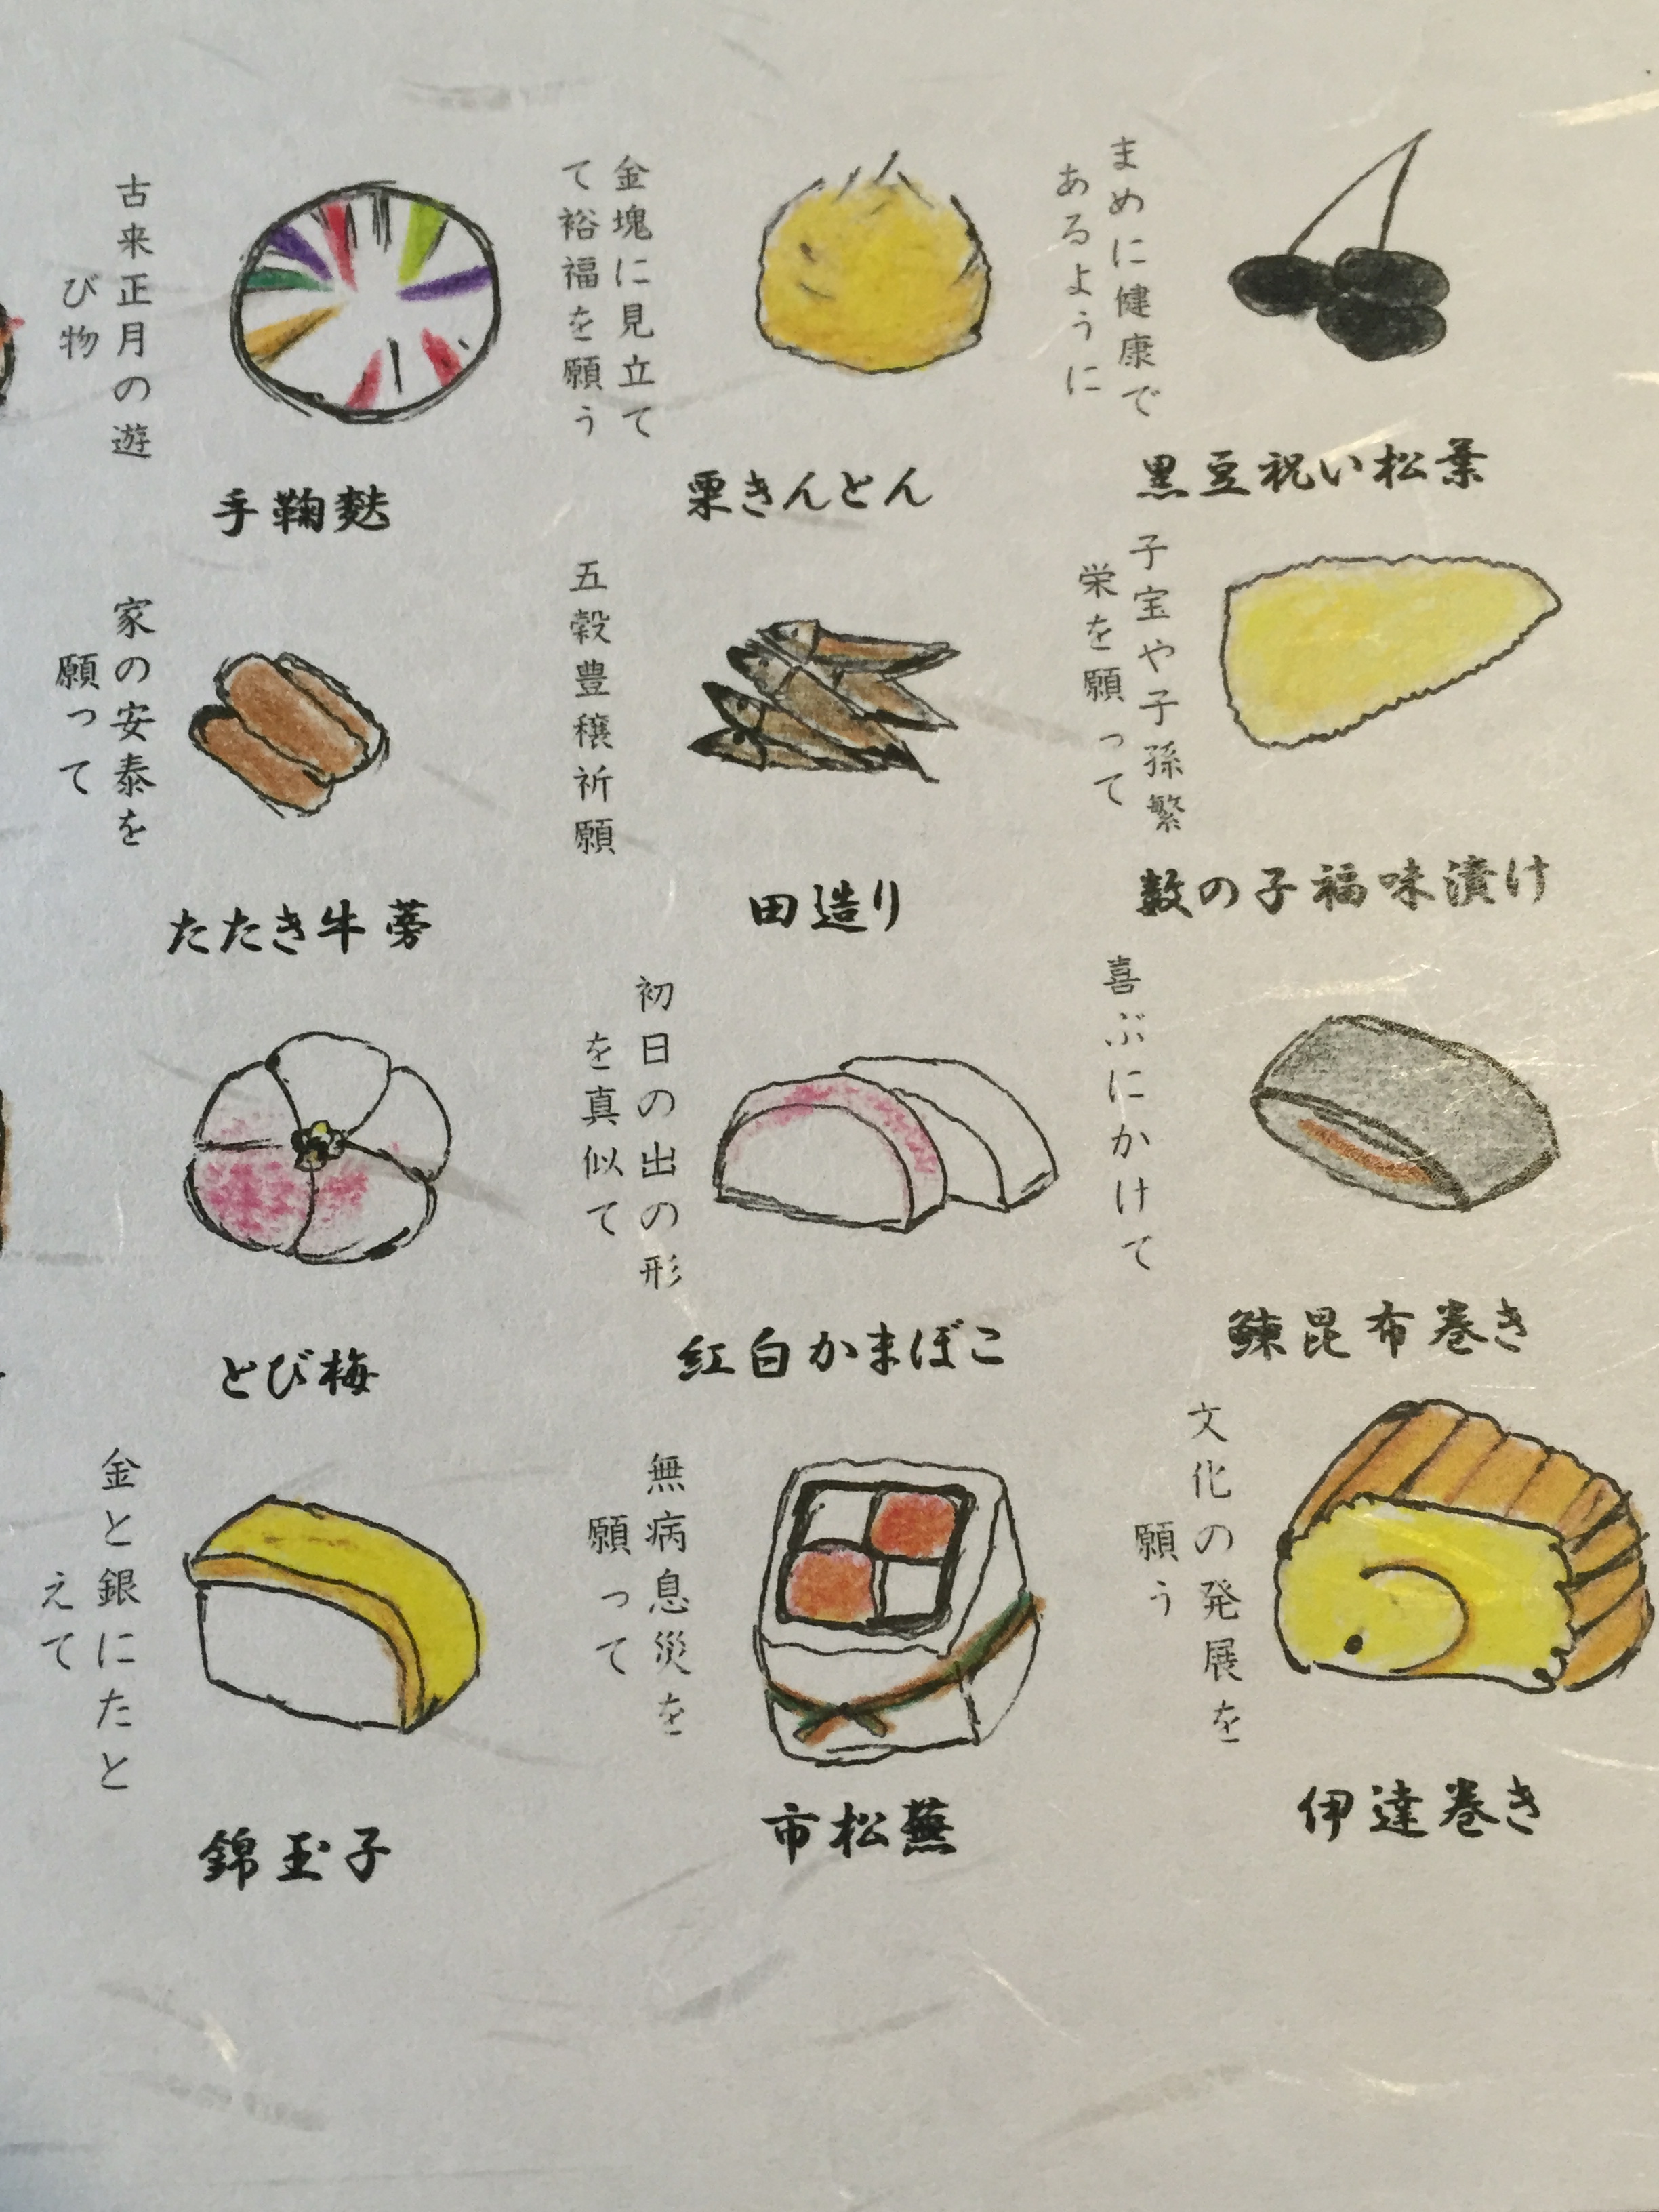 まめに健康で
あるように
黒豆祝い松葉
子宝や子孫繁
栄を願って
数の子福味漬け
喜ぶにかけて
鰊昆布巻き
文化の発展を
願う
伊達巻き
金塊に見立て
て裕福を願う
栗きんとん
五穀豊穣祈願
田造り
初日の出の形
を真似て
紅白かまぼこ
無病息災を
願って
市松蕪
古来正月の遊
び物
手鞠麩
家の安泰を
願って
たたき牛蒡
とび梅
金と銀にたと
えて
錦玉子